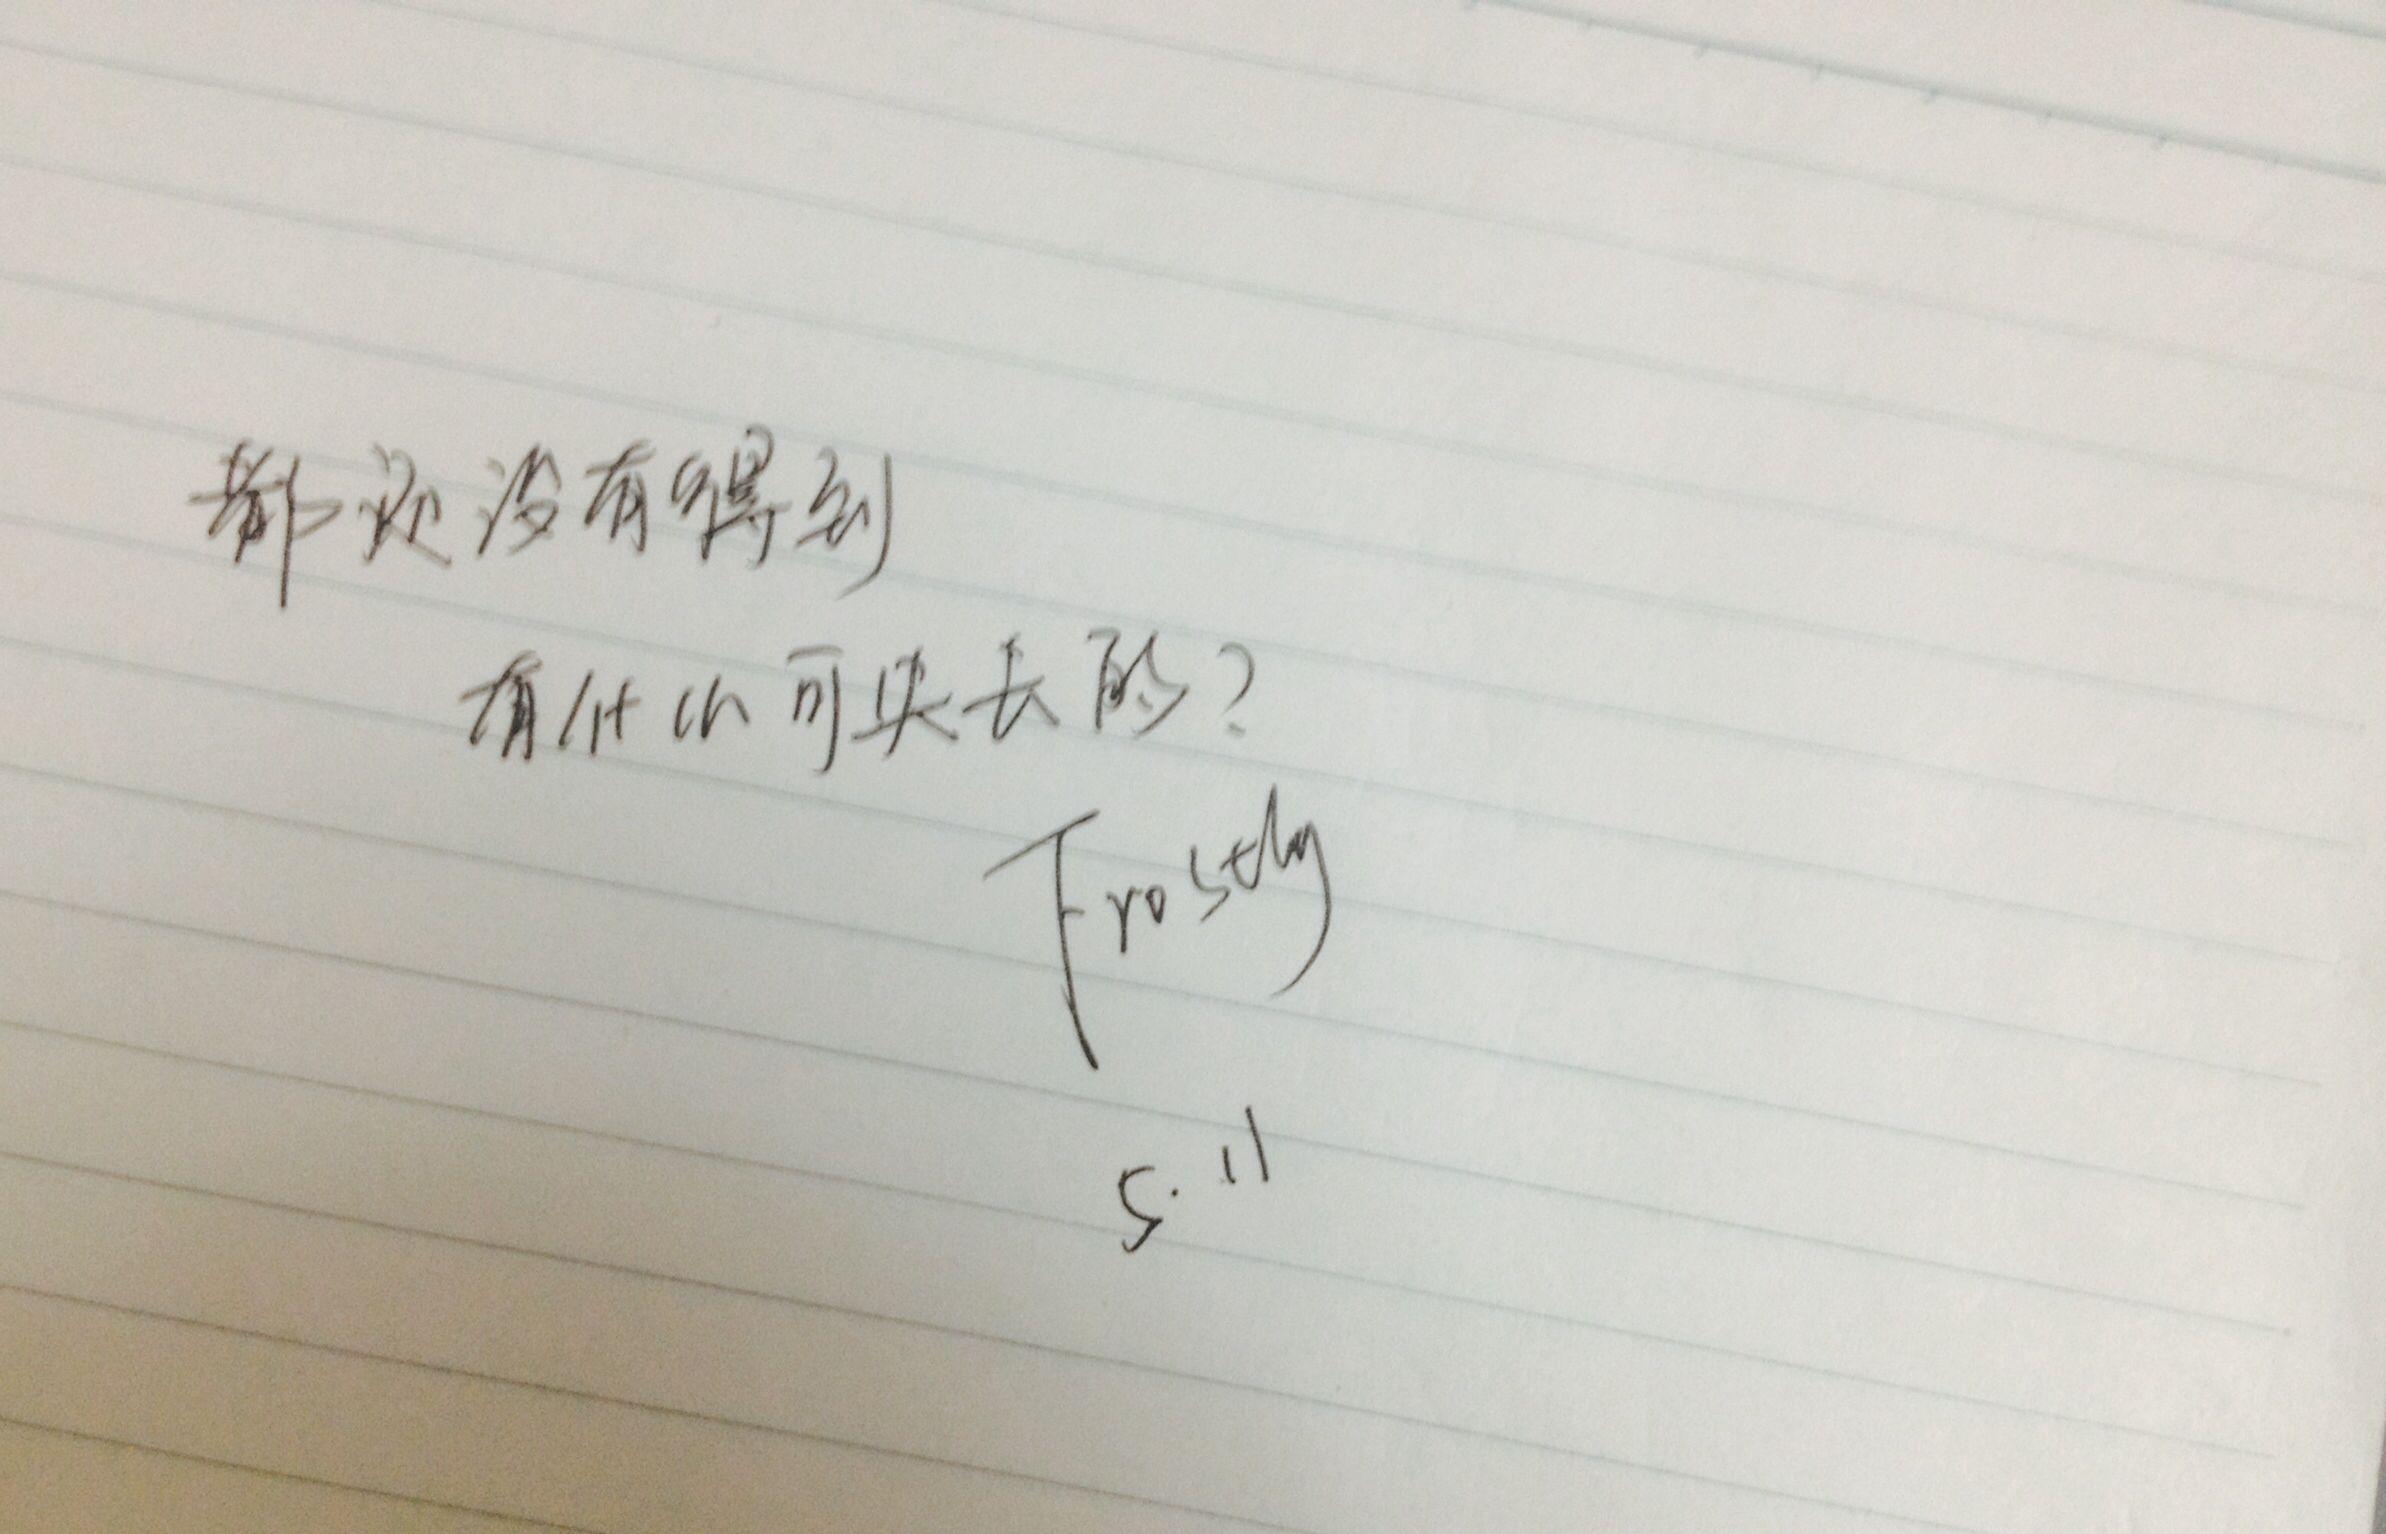 都还没有得到
有什么可失去的?
Frostly
5.11